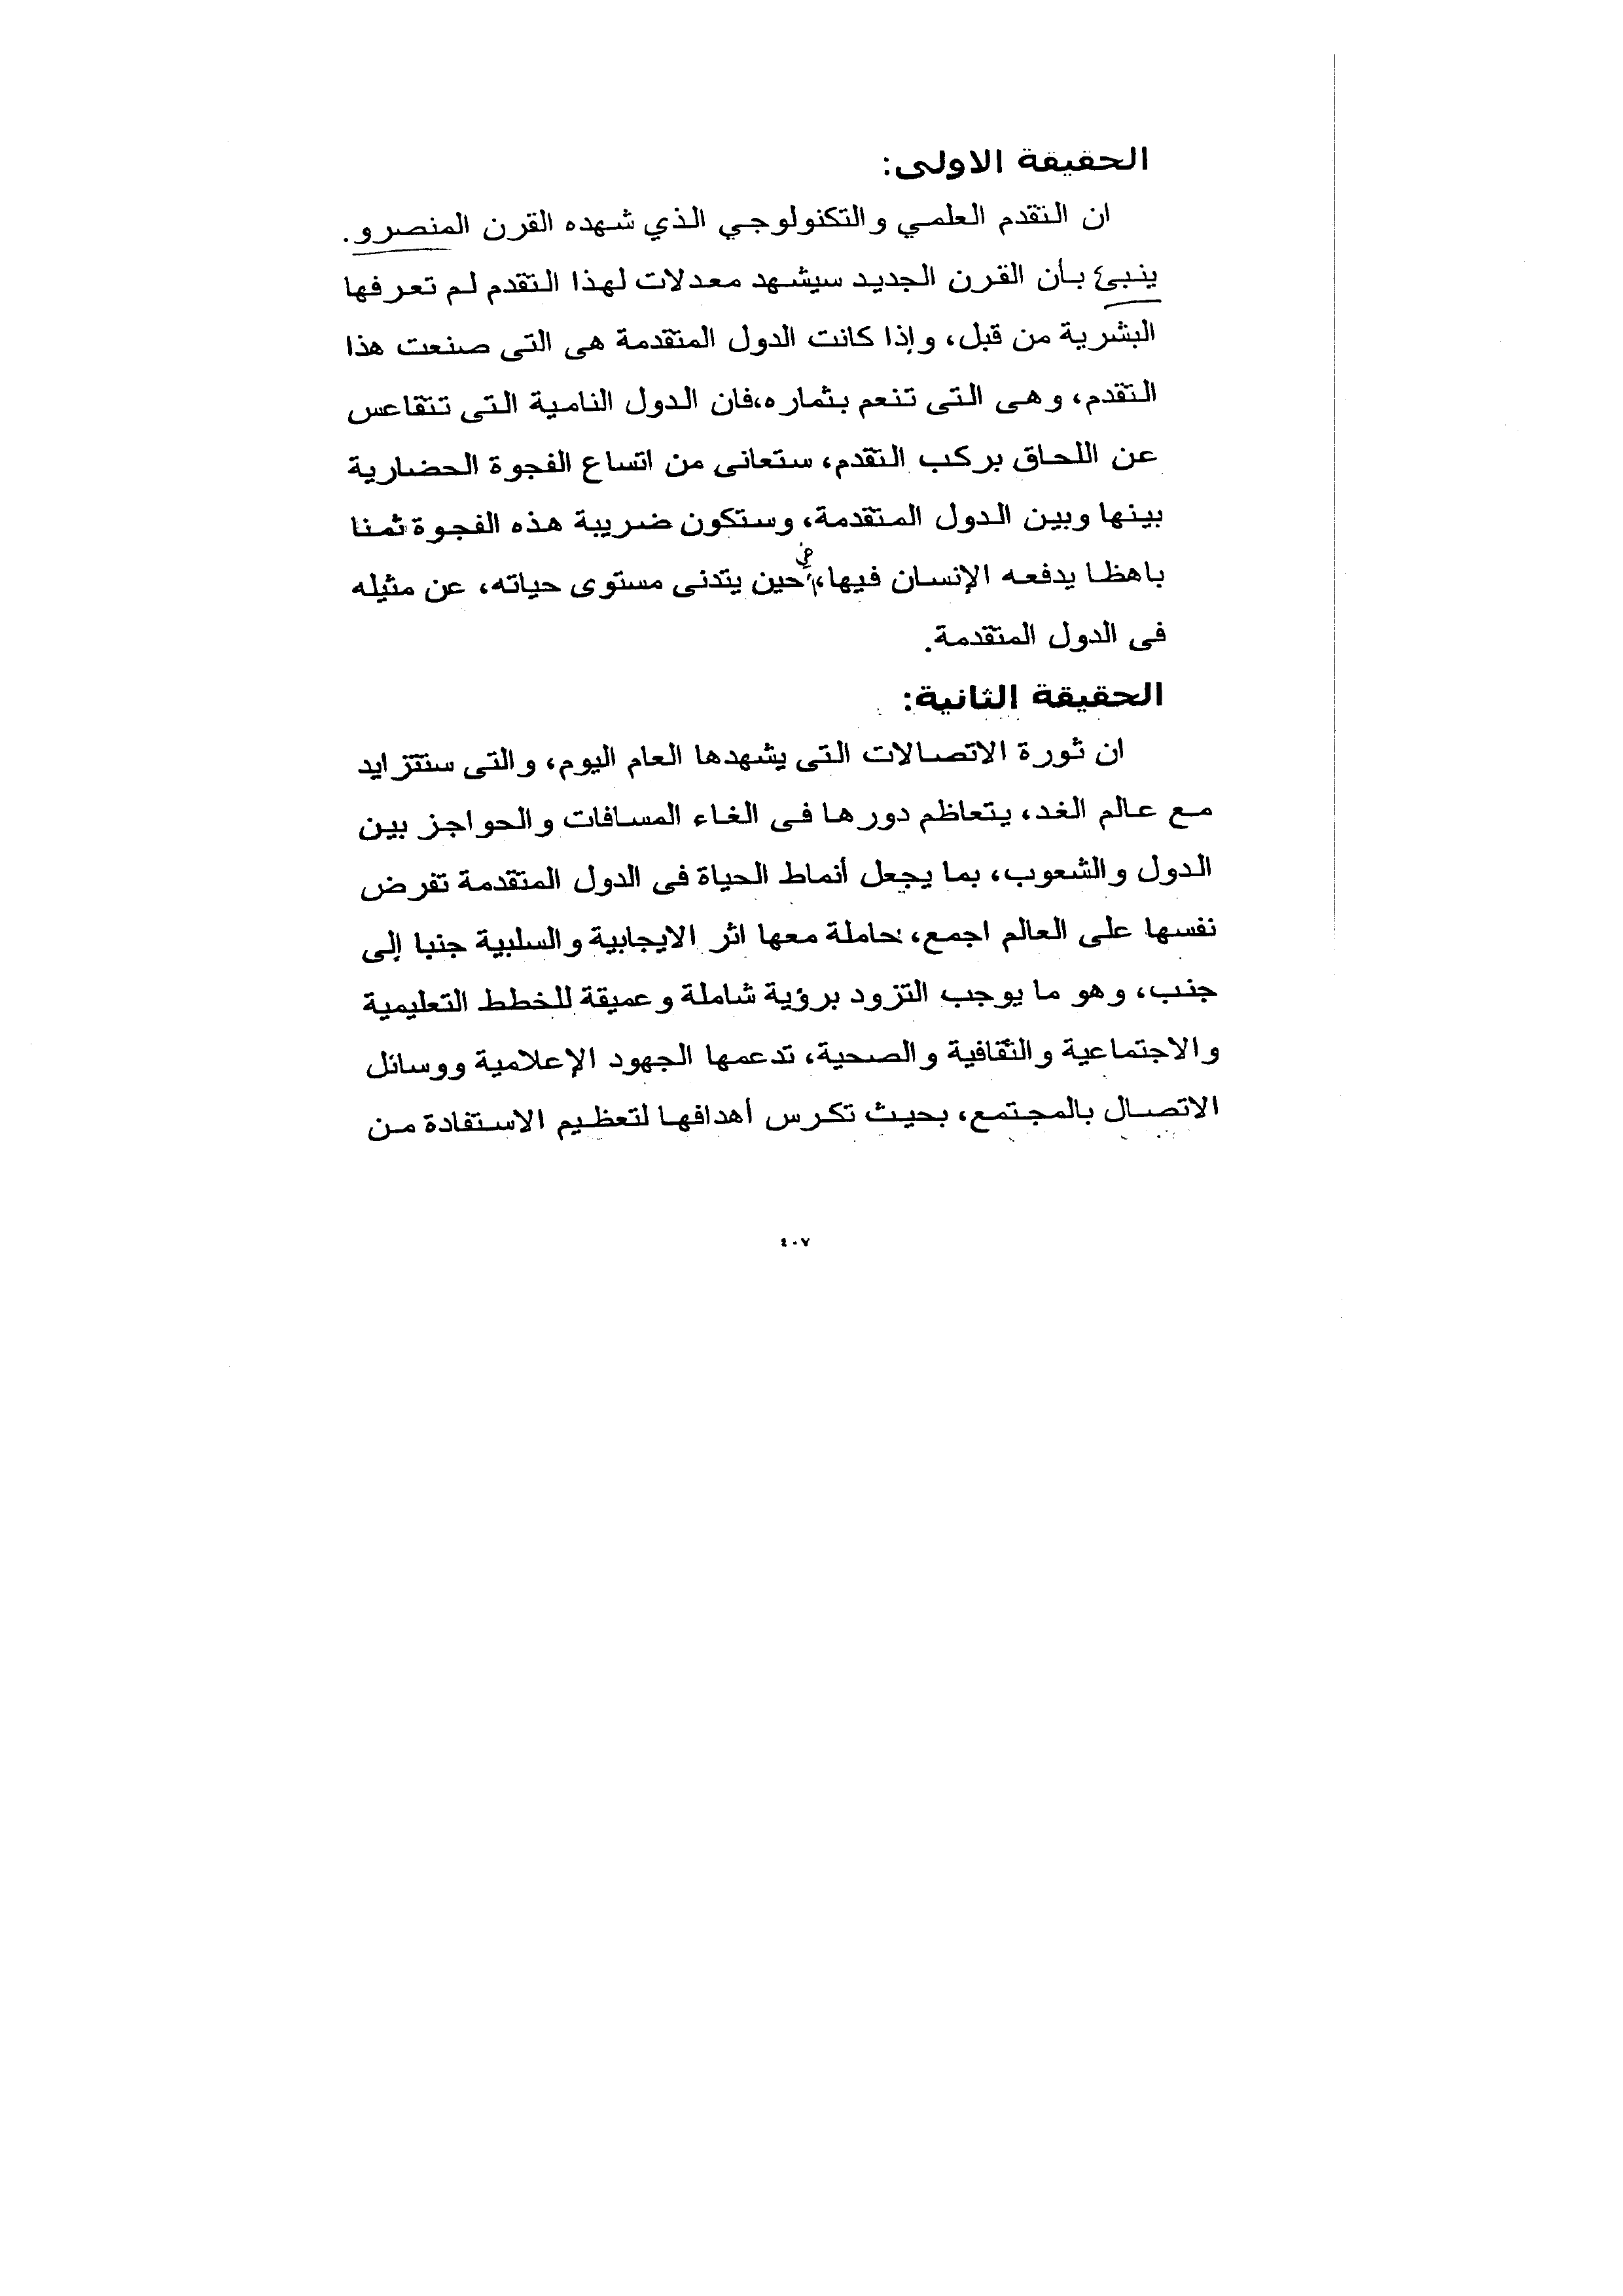 الحقيقة الاولى:
ان التقدم العلمي والتكنولوجي الذي شهده القرن المنصرو.
ينبئ بأن القرن الجديد سيشهد معدلات لهذا التقدم لم تعرفها
البشرية من قبل، وإذا كانت الدول المتقدمة هى التى صنعت هذا
التقدم، وهى التى تنعم بثماره،فان الدول النامية التى تتقاعس
عن اللحاق بركب التقدم، ستعانى من اتساع الفجوة الحضارية
بينها وبين الدول المتقدمة، وستكون ضريبة هذه الفجوة ثمنا
باهظا يدفعه الإنسان فيها، فى حين يتدنى مستوى حياته، عن مثيله
فى الدول المتقدمة.
الحقيقة الثانية:
ان ثورة الاتصالات التى يشهدها العام اليوم، والتى ستتزايد
مع عالم الغد، يتعاظم دورها فى الغاء المسافات والحواجز بين
الدول والشعوب، بما يجعل أنماط الحياة فى الدول المتقدمة تفرض
نفسها على العالم اجمع، حاملة معها اثر الايجابية والسلبية جنبا إلى
جنب، وهو ما يوجب التزود برؤية شاملة وعميقة للخطط التعليمية
والاجتماعية والثقافية والصحية، تدعمها الجهود الإعلامية ووسائل
الاتصال بالمجتمع، بحيث تكرس أهدافها لتعظيم الاستفادة من
٤٠٧